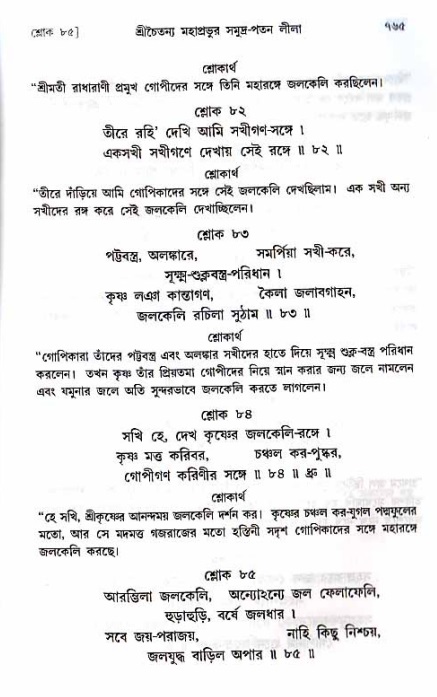 [শ্লোক ৮৫] শ্রীচৈতন্য মহাপ্রভুর সমুদ্র-পতন লীলা ৭৬৫
শ্লোকার্থ
“শ্রীমতী রাধারাণী প্রমুখ গোপীদের সঙ্গে তিনি মহারঙ্গে জলকেলি করছিলেন।
শ্লোক ৮২
তীরে রহি' দেখি আমি সখীগণ-সঙ্গে ।
একসখী সখীগণে দেখায় সেই রঙ্গে ॥ ৮২ ॥
শ্লোকার্থ
“তীরে দাঁড়িয়ে আমি গোপিকাদের সঙ্গে সেই জলকেলি দেখছিলাম। এক সখী অন্য
সখীদের রঙ্গ করে সেই জলকেলি দেখাচ্ছিলেন।
শ্লোক ৮৩
পট্টবস্ত্র, অলঙ্কারে, সমর্পিয়া সখী-করে,
সূক্ষ্ম-শুক্লবস্ত্র-পরিধান ।
কৃষ্ণ লঞা কান্তাগণ, কৈলা জলাবগাহন,
জলকেলি রচিলা সুঠাম ॥ ৮৩ ॥
শ্লোকার্থ
“গোপিকারা তাঁদের পট্টবস্ত্র এবং অলঙ্কার সখীদের হাতে দিয়ে সূক্ষ্ম শুক্ল-বস্ত্র পরিধান
করলেন। তখন কৃষ্ণ তাঁর প্রিয়তমা গোপীদের নিয়ে স্নান করার জন্য জলে নামলেন
এবং যমুনার জলে অতি সুন্দরভাবে জলকেলি করতে লাগলেন।
শ্লোক ৮৪
সখি হে, দেখ কৃষ্ণের জলকেলি-রঙ্গে ।
কৃষ্ণ মত্ত করিবর, চঞ্চল কর-পুষ্কর,
গোপীগণ করিণীর সঙ্গে ॥ ৮৪ ॥ ধ্রু ॥
শ্লোকার্থ
“হে সখি, শ্রীকৃষ্ণের আনন্দময় জলকেলি দর্শন কর। কৃষ্ণের চঞ্চল কর-যুগল পদ্মফুলের
মতো, আর সে মদমত্ত গজরাজের মতো হস্তিনী সদৃশ গোপিকাদের সঙ্গে মহারঙ্গে
জলকেলি করছে।
শ্লোক ৮৫
আরম্ভিলা জলকেলি, অন্যোহন্যে জল ফেলাফেলি,
হুড়াহুড়ি, বর্ষে জলধার ।
সবে জয়-পরাজয়, নাহি কিছু নিশ্চয়,
জলযুদ্ধ বাড়িল অপার ॥ ৮৫ ॥